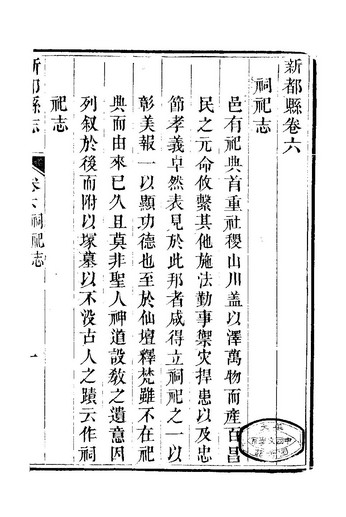 新都縣卷六
祠祀志
邑有祀典首重社稷山川盖以澤萬物而產百昌
民之元命攸繫其他施法勤事禦灾捍患以及忠
節孝義卓然表見於此邦者咸得立祠祀之一以
彰美報一以顯功德也至於仙壇釋梵雖不在祀
典而由來已久且莫非聖人神道設教之遺意因
列叙於後而附以塚墓以不没古人之蹟云作祠
祀志
新都縣志
卷六祠祀志
一